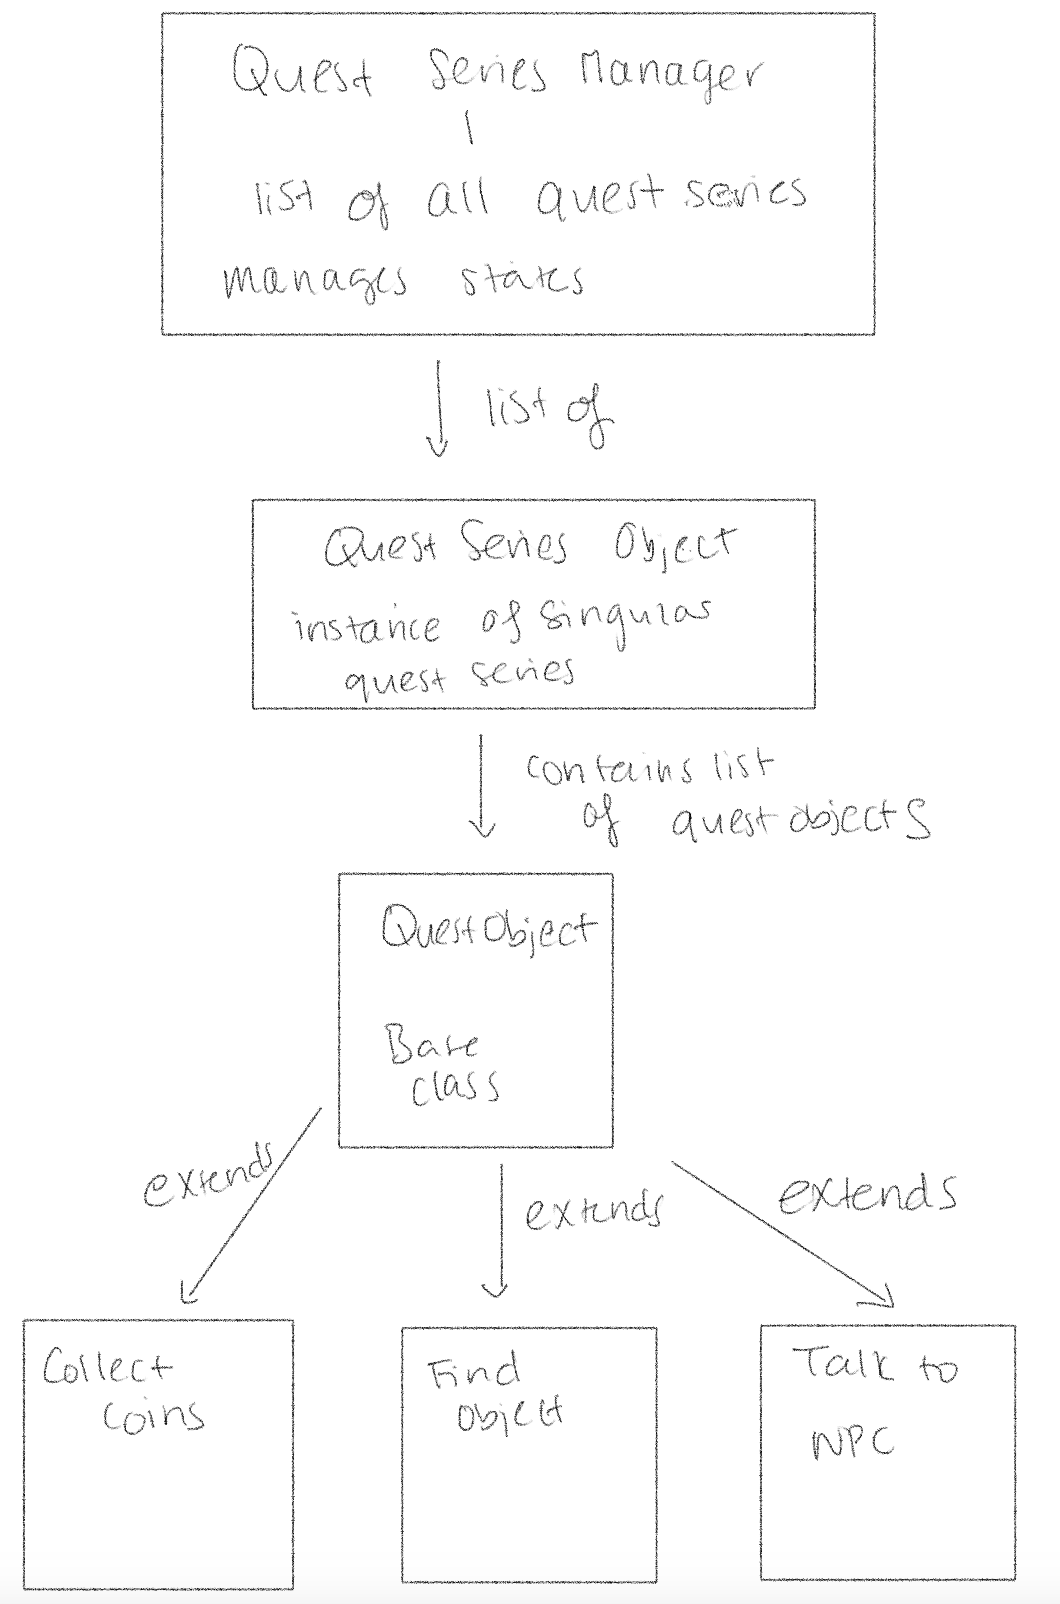 Quest Series Manager
list of all quest series
manages states
list of
Quest Series Object
instance of singular
quest series
contains list
of quest objects
QuestObject
Base
class
extends
extends
extends
Collect
Coins
Find
object
Talk to
NPC